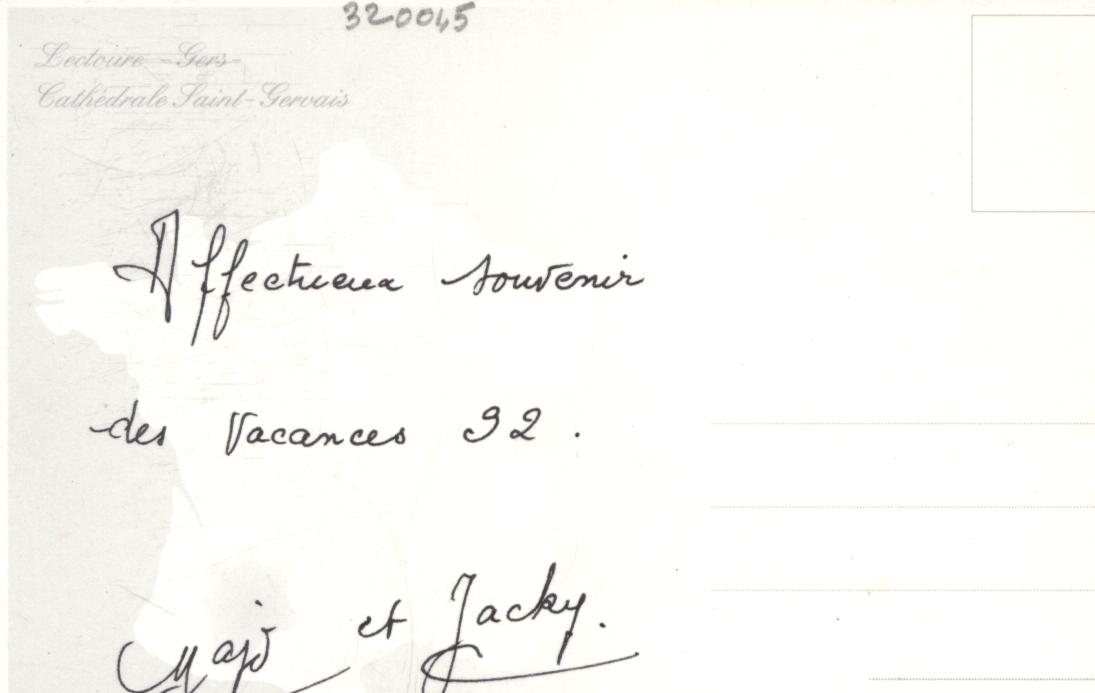 320045
Lectoure - Gers-
Cathédrale Saint-Gervais
Affectueux souvenir
des Vacances 92.
Majo et Jacky.